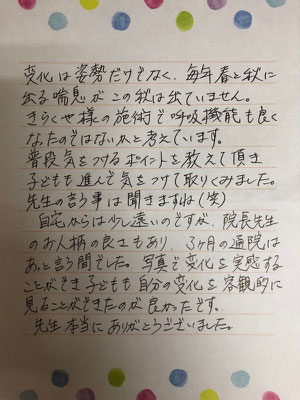 変化は姿勢だけでなく、毎年春と秋に
出る喘息がこの秋は出ていません。
きらくせ様の施術で呼吸機能も良く
なたのではないかと考えています。
普段気をつけるポイントを教えて頂き
子どもも進んで気をつけて取りくみました。
先生の言う事は聞きますね(笑)
自宅からは少し遠いのですが、院長先生
のお人柄の良さもあり、3ヶ月の通院は
あっと言う間でした。写真で変化を実感する
ことができ子どもも自分の変化を客観的に
見ることができたのが良かったです。
先生本当にありがとうございました。